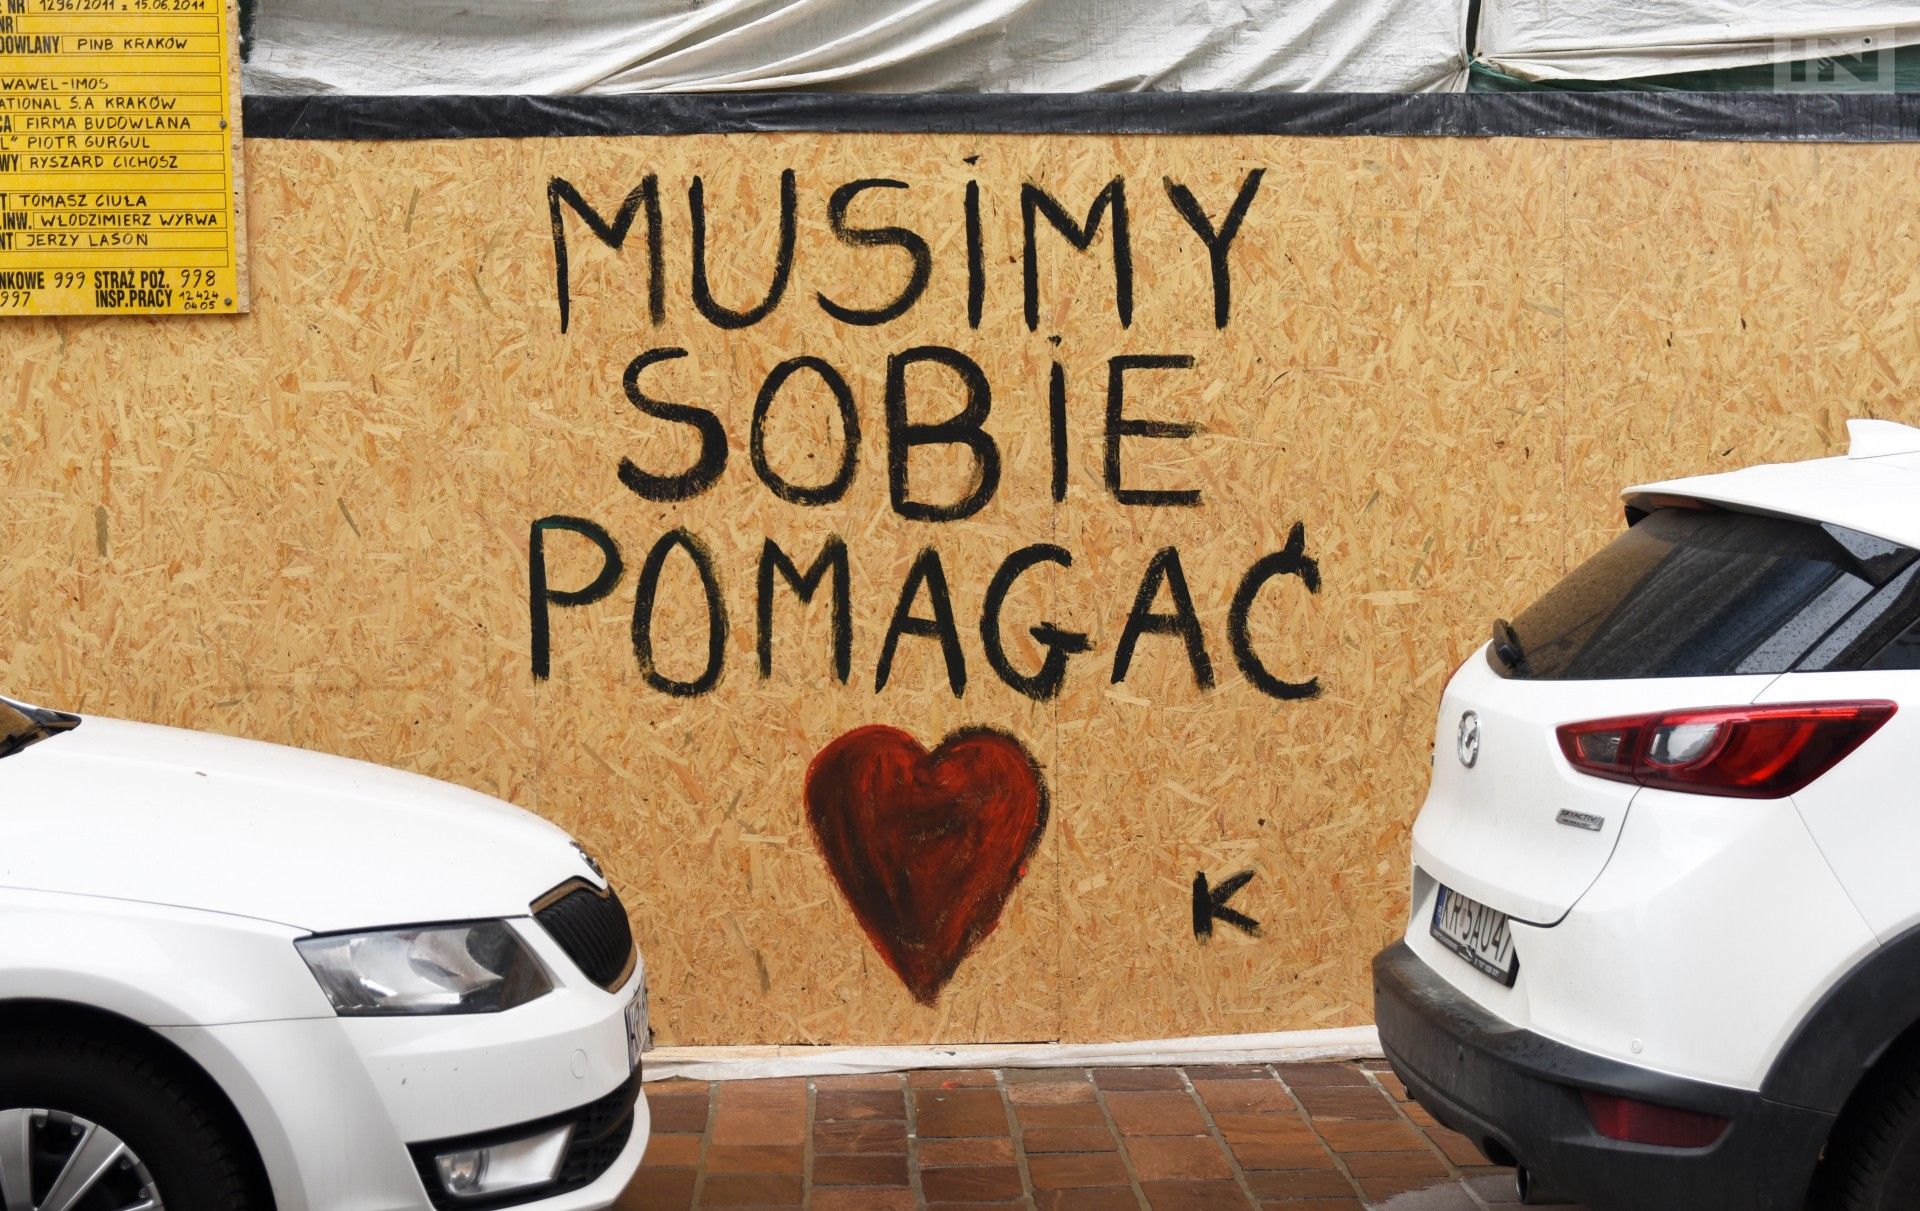 NR 1296/2011 z 15.06.2011
NR
PINB KRAKÓW
WAWEL-IMOS
S.A KRAKÓW
FIRMA BUDOWLANA
PIOTR GURGUL
RYSZARD CICHOSZ
TOMASZ CIUŁA
INW. WŁODZIMIERZ WYRWA
JERZY LASOŃ
999 STRAŻ POŻ. 998
997 INSP.PRACY 12 424
04 05
MUSIMY
SOBIE
POMAGAĆ
K
SKYACTIV
TECHNOLOGY
KR 5AU47
IN